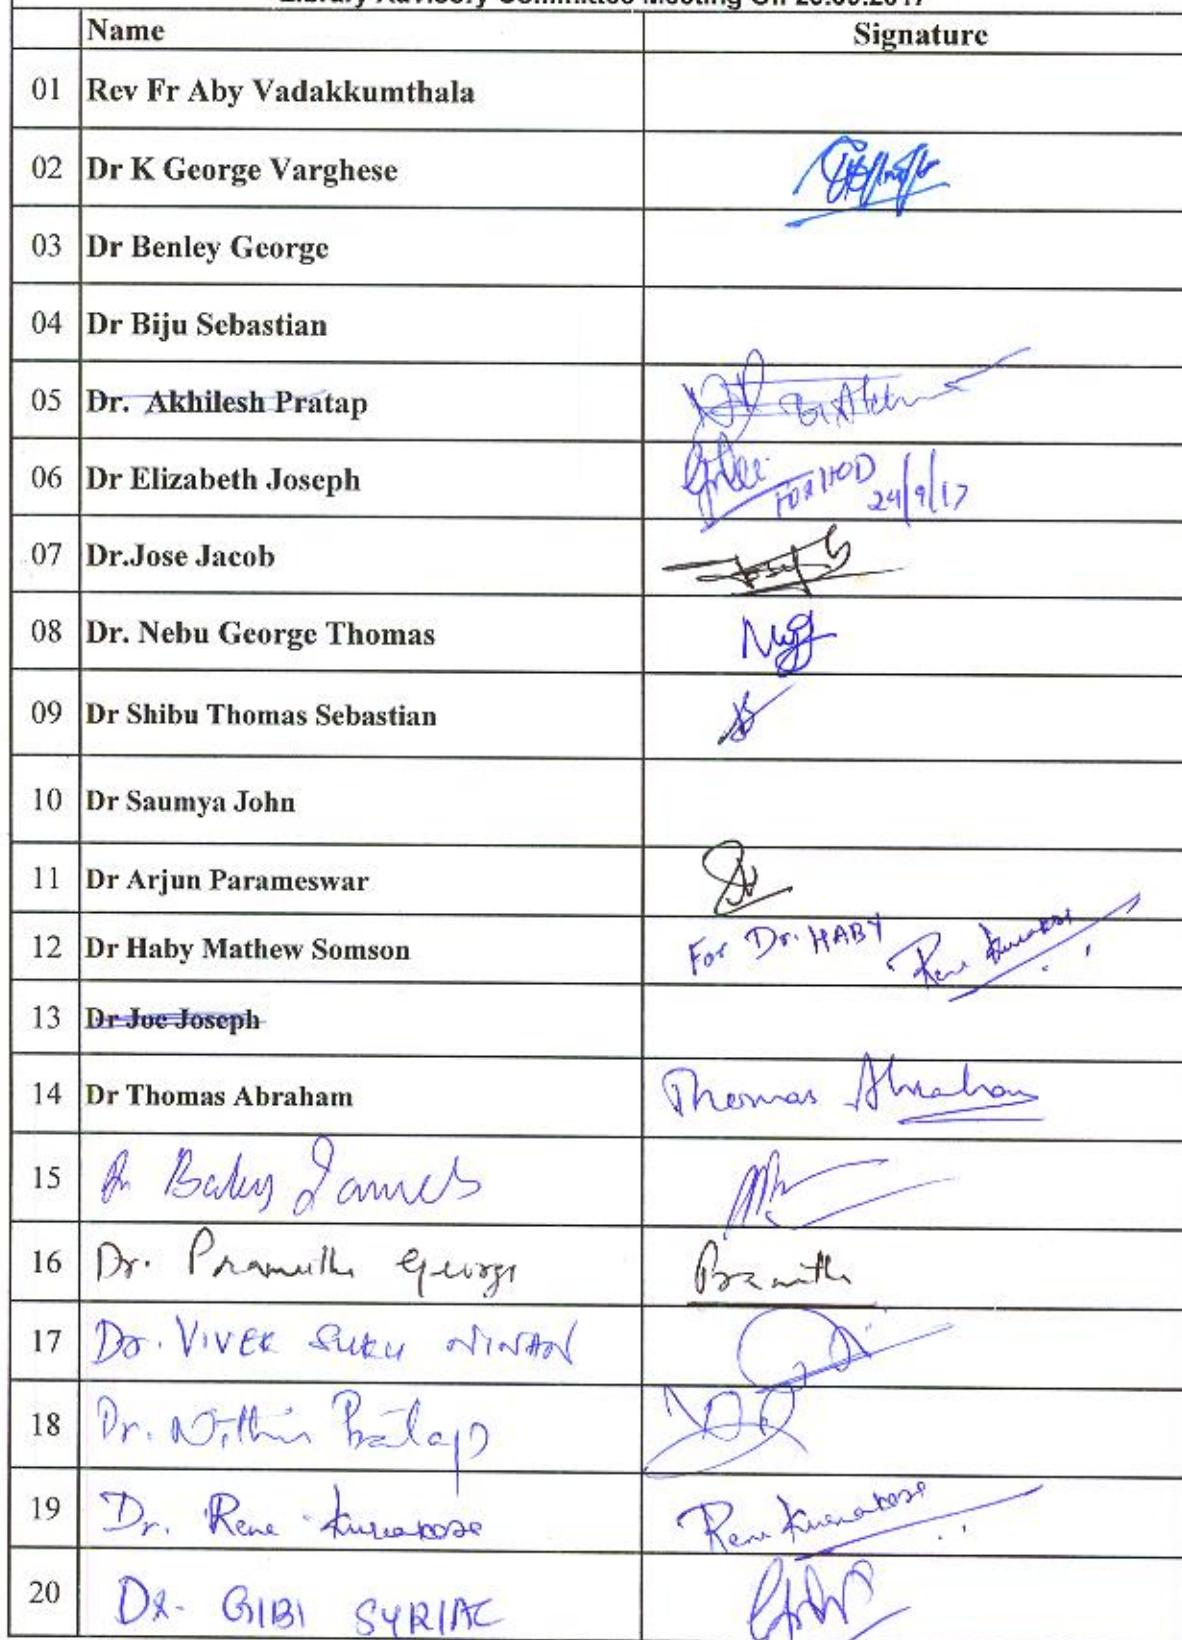 Library Advisory Committee Meeting On 26.09.2017
Name Signature
01 Rev Fr Aby Vadakkumthala
02 Dr K George Varghese
03 Dr Benley George
04 Dr Biju Sebastian
05 Dr. Akhilesh Pratap
06 Dr Elizabeth Joseph FOR HOD 24/9/17
07 Dr.Jose Jacob
08 Dr. Nebu George Thomas
09 Dr Shibu Thomas Sebastian
10 Dr Saumya John
11 Dr Arjun Parameswar
12 Dr Haby Mathew Somson For Dr. HABY Rene Kuriakose
13 Dr Joe Joseph
14 Dr Thomas Abraham Thomas Abraham
15 Dr Baby James
16 Dr. Pramitha George Pramitha
17 Dr. VIVEK SUKU NINAN
18 Dr. Nithin Pratap
19 Dr. Rene Kuriakose Rene Kuriakose
20 Dr. GIBI SYRIAC